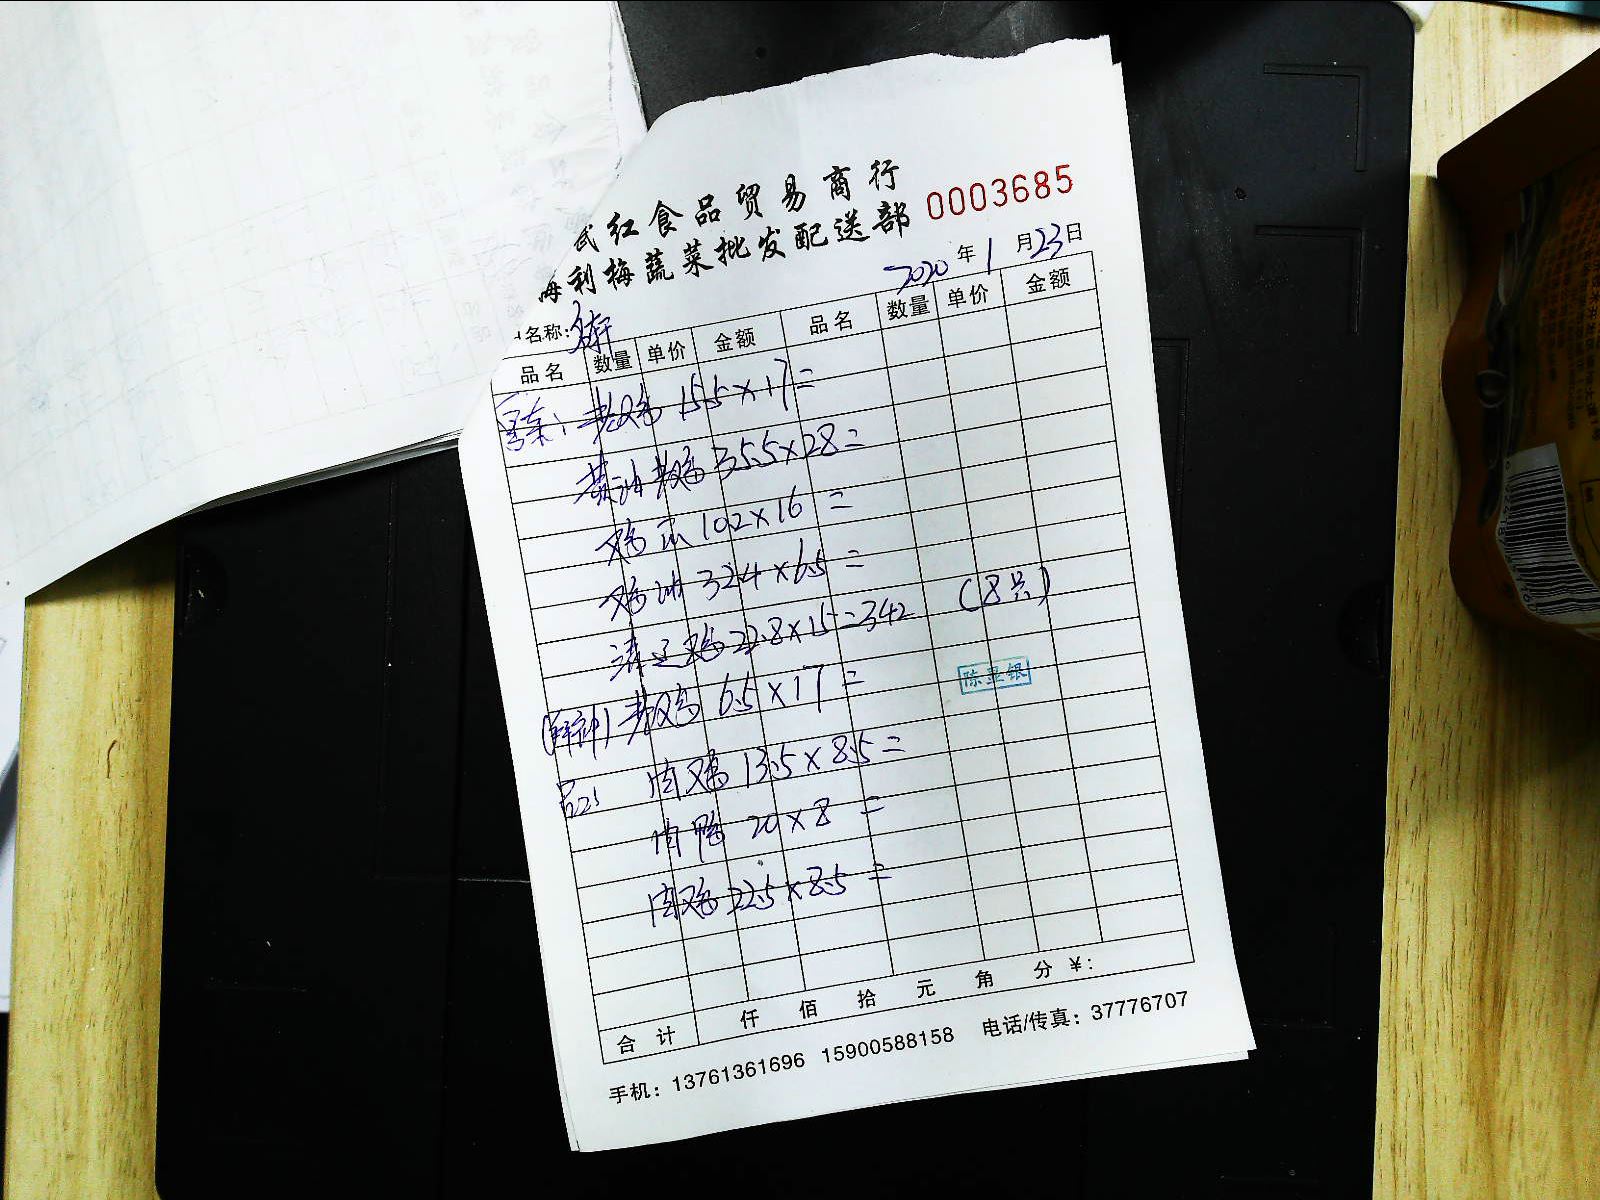 武红食品贸易商行
海利梅蔬菜批发配送部 0003685
2020年1月23日
名称:
品名 数量 单价 金额 品名 数量 单价 金额
老鸡 15.5×17=
黄油老鸡 35.5×28=
鸡爪 102×16=
鸡油 32.4×6.5=
清远鸡 22.8×15=342 (8只)
老鸡 6.5×17=
陈显银
肉鸡 13.5×8.5=
肉鸭 20×8=
肉鸡 22.5×8.5=
合计 仟 佰 拾 元 角 分 ¥:
手机: 13761361696 15900588158 电话/传真: 37776707